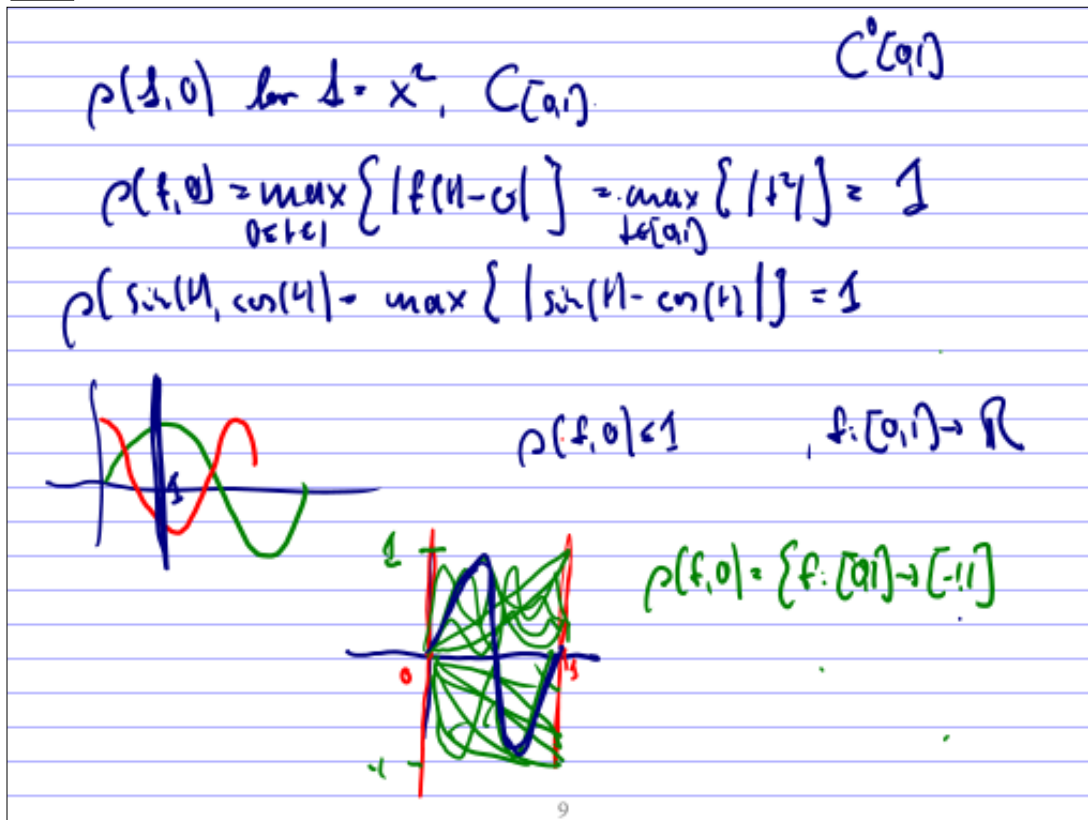 C⁰[0,1]
ρ(f,0) for f = x², C[0,1].
ρ(f,0) = max 0≤t≤1 { |f(t)-0| } = max t∈[0,1] { |t²| } = 1
ρ( sin(t), cos(t) ) = max { | sin(t) - cos(t) | } = 1
1
ρ(f,0) ≤ 1 , f: [0,1] → ℝ
1
ρ(f,0) = { f: [0,1] → [-1,1]
0 1
-1
9